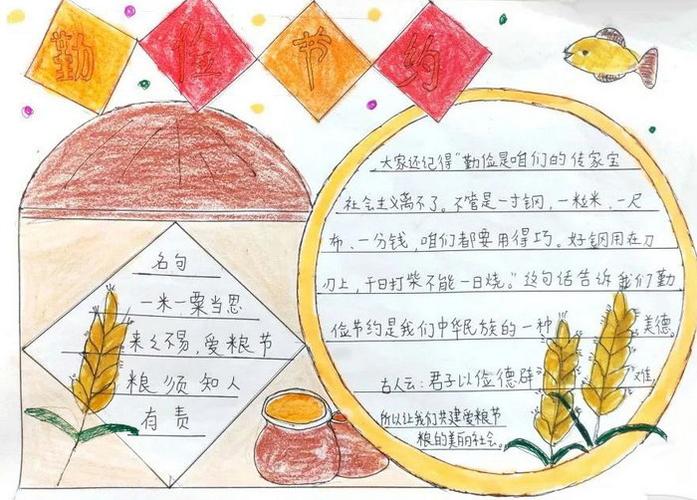 勤俭节约
大家还记得“勤俭是咱们的传家宝
社会主义离不了。不管是一寸钢,一粒米、一尺
布、一分钱,咱们都要用得巧。好钢用在刀
刃上,千日打柴不能一日烧。”这句话告诉我们勤
俭节约是我们中华民族的一种美德。
古人云:君子以俭德辟难,
所以让我们共建爱粮节
粮的美丽社会。
名句
一米一粟当思
来之不易,爱粮节
粮须知人
有责